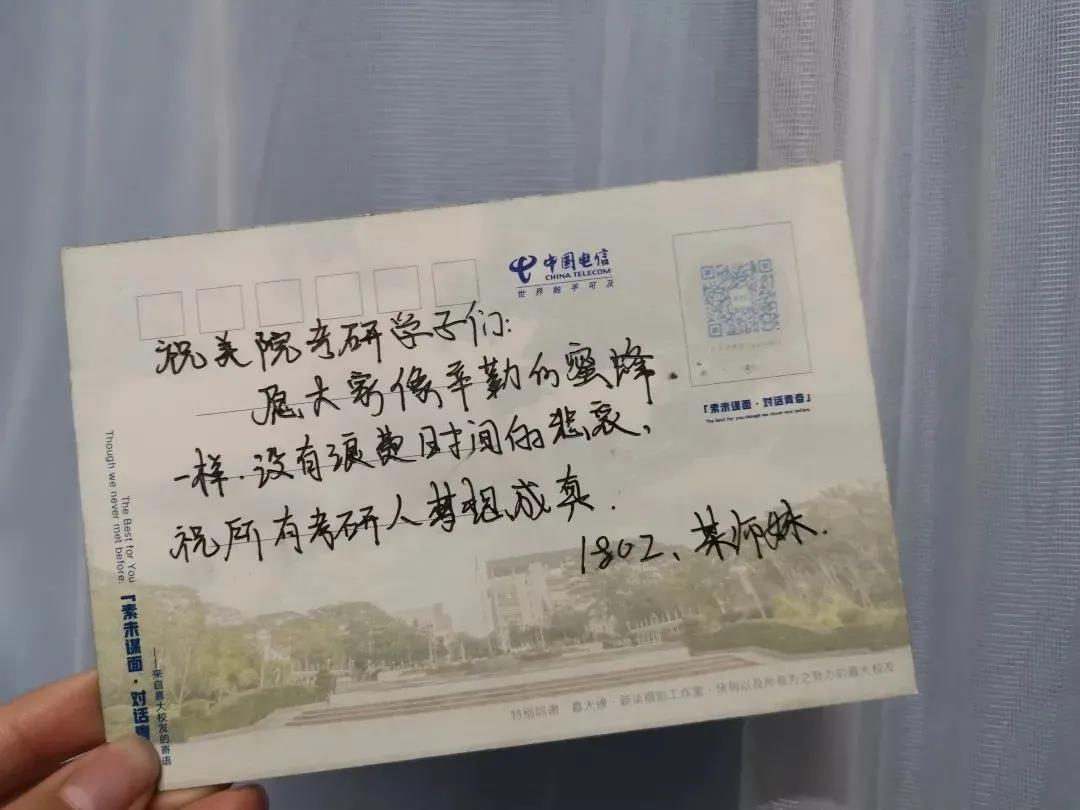 中国电信
CHINA TELECOM
世界触手可及
祝美院考研学子们：
愿大家像辛勤的蜜蜂
一样.没有浪费时间的悲哀、
祝所有考研人梦想成真.
1802、某师妹.
「素未谋面·对话青春」
The best for you,though we never met before.
The Best for You
Though we never met before.
「素未谋面·对话青
——来自嘉大校友的寄语
特别鸣谢 嘉大缘·新法摄影工作室·
以及所有为之努力的嘉大校友